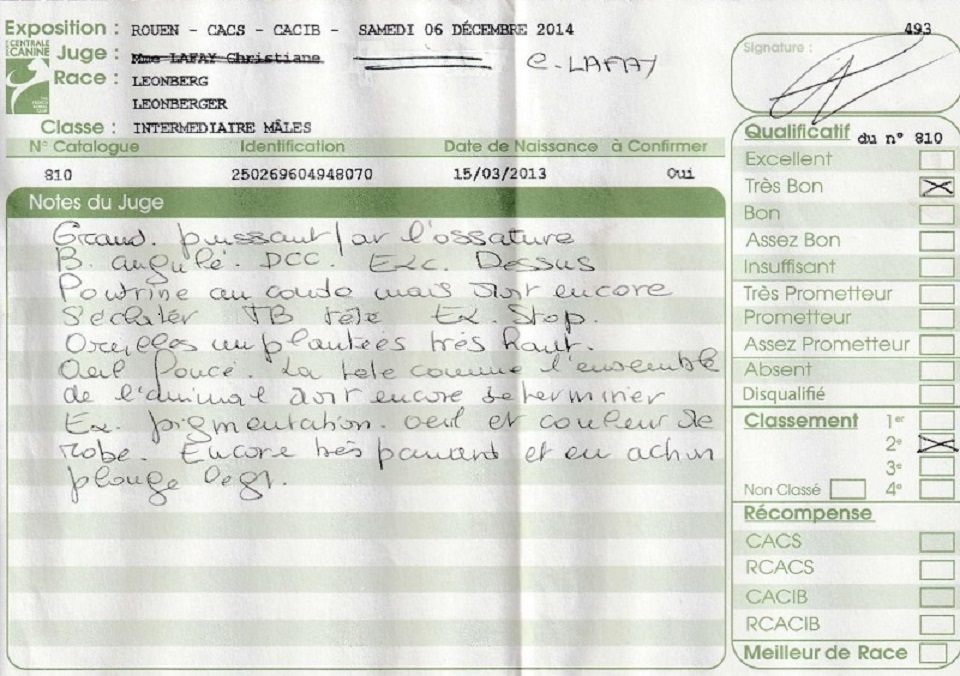 Exposition : ROUEN - CACS - CACIB - SAMEDI 06 DÉCEMBRE 2014
493
CENTRALE CANINE
Juge : Mme LAFAY Christiane C-LAFAY
Signature :
Race : LEONBERG
LEONBERGER
Classe : INTERMEDIAIRE MÂLES
N° Catalogue Identification Date de Naissance à Confirmer
810 250269604948070 15/03/2013 Oui
Notes du Juge
Grand. puissant par l'ossature
B. angulé. DCC. Exc. Dessus
Poitrine au coude mais doit encore
S'éclater TB tête Ex. Stop.
Oreilles implantées très haut.
Oeil Foncé. La tête comme l'ensemble
de l'animal doit encore se terminer
Ex. pigmentation. oeil et couleur de
robe. Encore très panard et en action
plonge legt.
Qualificatif du n° 810
Excellent
Très Bon
Bon
Assez Bon
Insuffisant
Très Prometteur
Prometteur
Assez Prometteur
Absent
Disqualifié
Classement 1er
2e
3e
Non Classé 4e
Récompense
CACS
RCACS
CACIB
RCACIB
Meilleur de Race